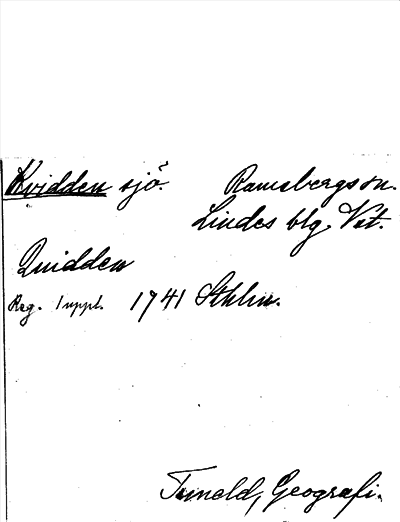 Kvidden sjö. Ramsbergs sn.
Lindes blg. Vst.
Quidden
Reg. 1 uppl. 1741 Sthlm.
Tuneld, Geografi.